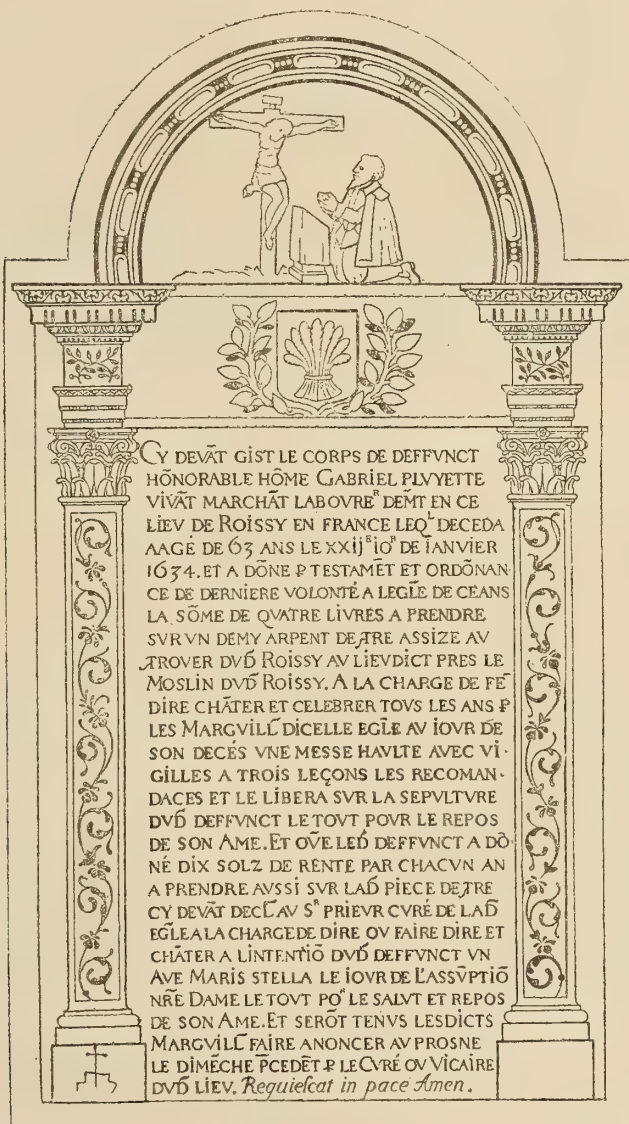 CY DEVÃT GIST LE CORPS DE DEFFVNCT
HÕNORABLE HÔME GABRIEL PLVYETTE
VIVÃT MARCHÃT LABOVREᴿ DEM̃T EN CE
LIEV DE ROISSY EN FRANCE LEQᴸ DECEDA
AAGÉ DE 63 ANS LE XXIJᴱ IOᴿ DE IANVIER
1634. ET A DÕNE ꝑ TESTAMẼT ET ORDÕNAN·
CE DE DERNIERE VOLONTÉ A LEGL̃E DE CEANS
LA SÕME DE QVATRE LIVRES A PRENDRE
SVR VN DEMY ARPENT DE T̃RE ASSIZE AV
T̃ROVER DVD̃ ROISSY AV LIEVDICT PRES LE
MOSLIN DVD̃ ROISSY. A LA CHARGE DE FẼ
DIRE CHÃTER ET CELEBRER TOVS LES ANS ꝑ
LES MARGVILL̃ DICELLE EGL̃E AV IOVR DE
SON DECÉS VNE MESSE HAVLTE AVEC VI·
GILLES A TROIS LEÇONS LES RECOMAN·
DACES ET LE LIBERA SVR LA SEPVLTVRE
DVD̃ DEFFVNCT LE TOVT POVR LE REPOS
DE SON AME. ET OVẼ LED̃ DEFFVNCT A DÕ·
NÉ DIX SOLZ DE RENTE PAR CHACVN AN
A PRENDRE AVSSI SVR LAD̃ PIECE DE T̃RE
CY DEVÃT DECL̃ AV Sᴿ PRIEVR CVRÉ DE LAD̃
EGL̃E A LA CHARGE DE DIRE OV FAIRE DIRE ET
CHÃTER A LINTENTIÕ DVD̃ DEFFVNCT VN
AVE MARIS STELLA LE IOVR DE L'ASSṼPTIÕ
NR̃E DAME LE TOVT POᴿ LE SALVT ET REPOS
DE SON AME. ET SERÕT TENVS LESDICTS
MARGVILL̃ FAIRE ANONCER AV PROSNE
LE DIMẼCHE P̃CEDẼT ꝑ LE CVRÉ OV VICAIRE
DVD̃ LIEV. Requieſcat in pace Amen.